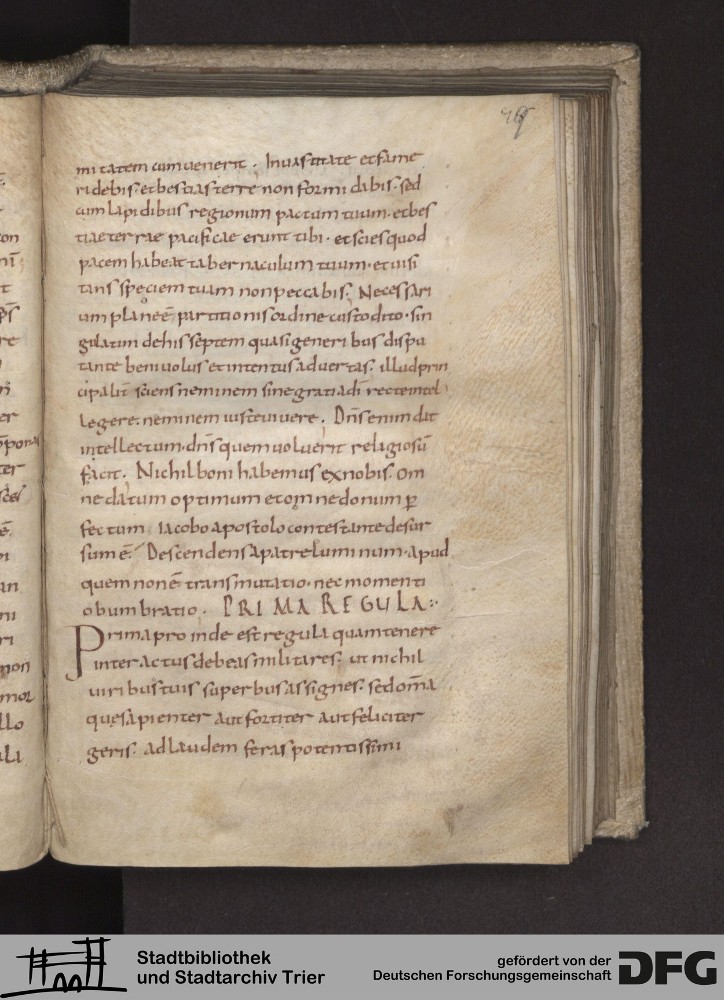 mitatem cum venerit. Invastitate etfame
ridebis. etbestiasterre nonformidabis. sed
cum lapidibus regionum pactum tuum. etbes
tiaeterrae pacificae erunt tibi. etsciesquod
pacem habeat tabernaculum tuum. etvisi
tans speciem tuam nonpeccabis. Necessari
um planeē partitionisordine custodito. sin
gulatim dehisseptem quasigeneribusdispu
tante benivolus etintentusadvertas. illudprin
cipalit sciensneminem sinegratiadī recteintel
legere. neminem iustevivere. Dn̄s enim dat
intellectum. dn̄squem voluerit religiosū
facit. Nichilboni habemus exnobis. Om
nedatum optimum etomnedonum ꝑ
fectum. iacobo apostolo contestantedesur
sumē. Descendens apatreluminum. apud
quem nonē transmutatio. nec momenti
obumbratio. PRIMA REGULA:.
Prima proinde est regula quamtenere
inter actusdebeasmilitares. ut nichil
viribustuis superbusassignes. sed om̄a
quęsapienter aut fortiter aut feliciter
geris. adlaudem feraspotentissimi
Stadtbibliothek
und Stadtarchiv Trier
gefördert von der
Deutschen Forschungsgemeinschaft
DFG